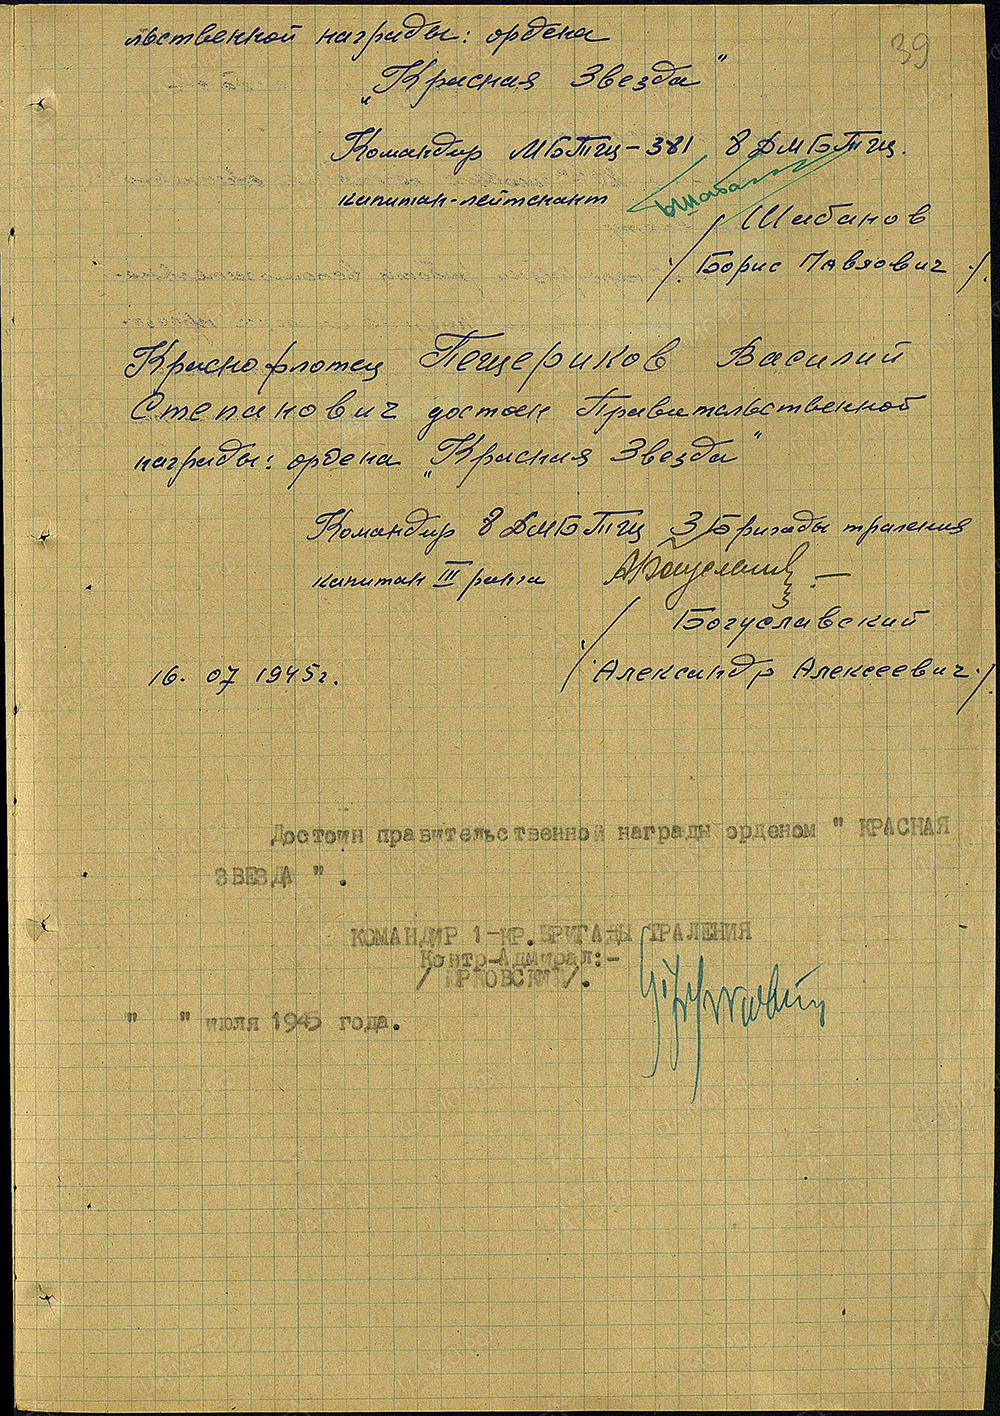 39
льственной награды: ордена
„Красная Звезда"
Командир МБТЩ-381 8 ДМБТЩ.
капитан-лейтенант
/ Шабанов
/. Борис Павлович ./.
Краснофлотец Пещериков Василий
Степанович достоен Правительственной
награды: ордена „Красная Звезда"
Командир 8 ДМБТЩ 3 Бригады траления
капитан III ранга
/ Богуславский
/. Александр Алексеевич ./.
16. 07 1945г.
Достоин правительственной награды орденом " КРАСНАЯ
ЗВЕЗДА " .
КОМАНДИР 1-КР. БРИГАДЫ ТРАЛЕНИЯ
Контр-Адмирал:-
/ ЮРКОВСКИЙ/.
" " июля 1945 года.